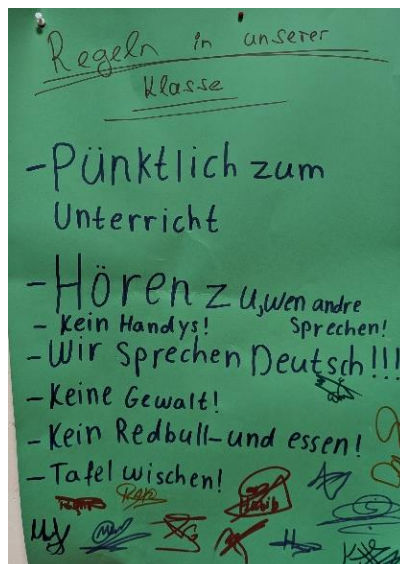 Regeln in unserer
Klasse
- Pünktlich zum
Unterricht
- Hören zu, wen andre
Sprechen!
- Kein Handys!
- Wir Sprechen Deutsch!!!
- Keine Gewalt!
- Kein Redbull-und essen!
- Tafel wischen!
Habib